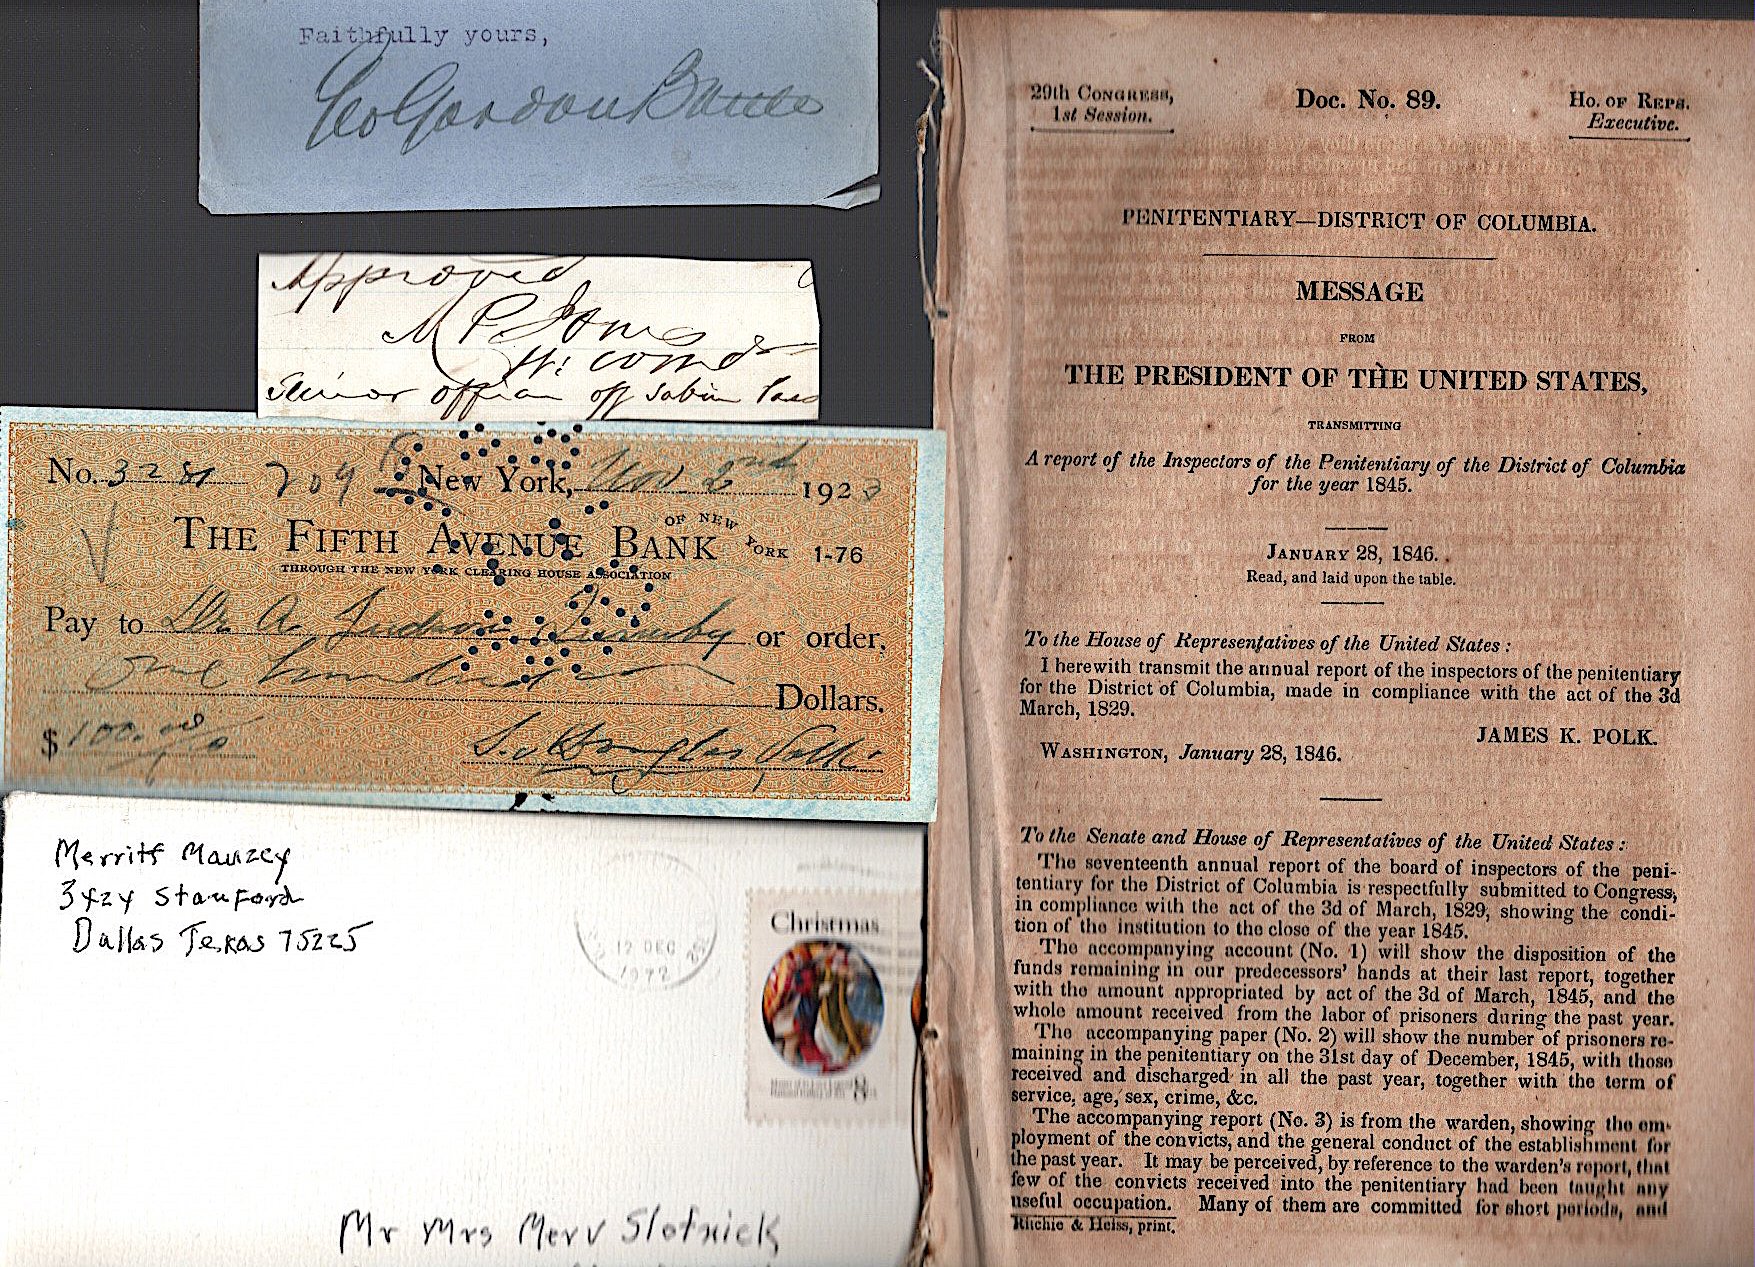 Faithfully yours,
Geo Gordon
Approved
M P Jones
Lt: comd
Senior off Sabine Pass
No. 3281 209 New York, Nov. 2nd 1923
THE FIFTH AVENUE BANK OF NEW YORK 1-76
THROUGH THE NEW YORK CLEARING HOUSE ASSOCIATION
Pay to Dr. A. Judson Quimby or order,
one hundred
Dollars.
$100.00
Merritt Mauzey
3424 Stanford
Dallas Texas 75225
12 DEC
1972
Christmas
8
Mr Mrs Merv Slotnick
29th CONGRESS,
1st Session.
Doc. No. 89.
HO. OF REPS.
Executive.
PENITENTIARY—DISTRICT OF COLUMBIA.
MESSAGE
FROM
THE PRESIDENT OF THE UNITED STATES,
TRANSMITTING
A report of the Inspectors of the Penitentiary of the District of Columbia
for the year 1845.
JANUARY 28, 1846.
Read, and laid upon the table.
To the House of Representatives of the United States:
I herewith transmit the annual report of the inspectors of the penitentiary
for the District of Columbia, made in compliance with the act of the 3d
March, 1829.
JAMES K. POLK.
WASHINGTON, January 28, 1846.
To the Senate and House of Representatives of the United States:
The seventeenth annual report of the board of inspectors of the peni-
tentiary for the District of Columbia is respectfully submitted to Congress,
in compliance with the act of the 3d of March, 1829, showing the condi-
tion of the institution to the close of the year 1845.
The accompanying account (No. 1) will show the disposition of the
funds remaining in our predecessors' hands at their last report, together
with the amount appropriated by act of the 3d of March, 1845, and the
whole amount received from the labor of prisoners during the past year.
The accompanying paper (No. 2) will show the number of prisoners re-
maining in the penitentiary on the 31st day of December, 1845, with those
received and discharged in all the past year, together with the term of
service, age, sex, crime, &c.
The accompanying report (No. 3) is from the warden, showing the em-
ployment of the convicts, and the general conduct of the establishment for
the past year. It may be perceived, by reference to the warden's report, that
few of the convicts received into the penitentiary had been taught any
useful occupation. Many of them are committed for short periods, and
Ritchie & Heiss, print.